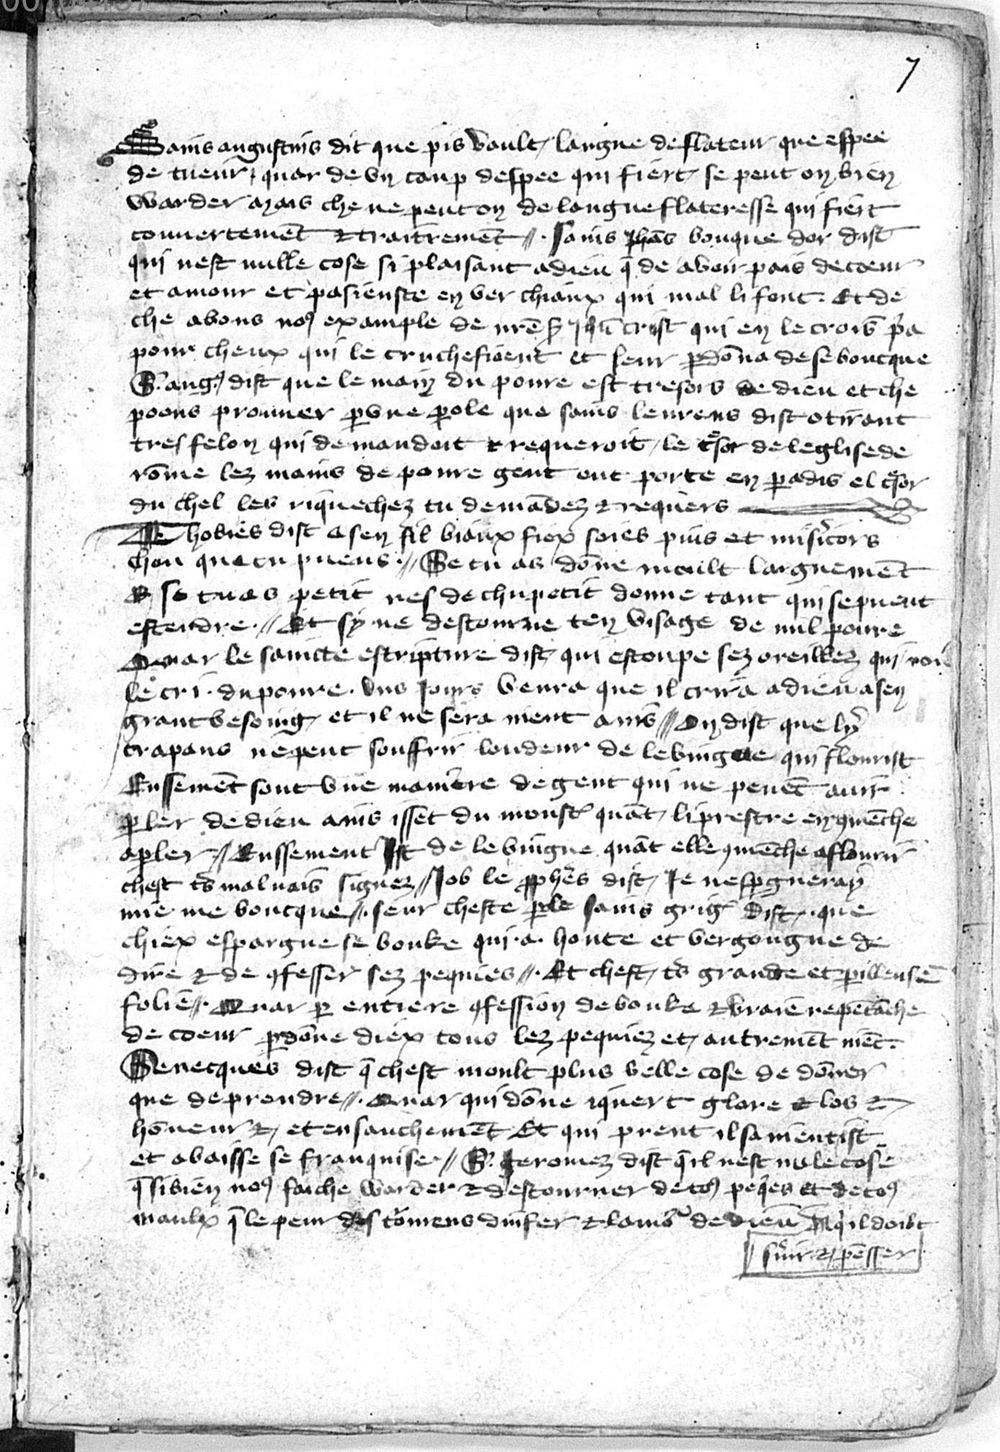 7
Sains augustins dit que pis vault langue de flateur que espee
de tueur / quar de vn caup despee qui fiert se peut on bien
warder mais che ne peut on de langue flateresse qui fiert
couvertement et traitrement // . Sains jehans bouque dor dist
qui nest nulle cose si plaisant a dieu q̄ de avoir pais de coeur
et amour et pasienste en ver chiaux qui mal li font . Et de
che avons no9 example de nrē sr̄ ihū crist qui en le crois p̄a
pour cheux qui le cruchefioient et leur pdōna de se boucque
S. aug9 dist que le main du poure est tresors de dieu et che
poons prouuer p vne pole que sains leurens dist o tirant
tres felon qui demandoit et requeroit le tsor de leglise de
rōme lez mains de poure gent ont porte en padis el tsor
du chel les riquechez tu demādez et requers
Thobies dist a sen fil biaux fiex soies pius et misicors
chou que tu pueus . // Se tu as dōne moult larguemēt
Et se tu as petit nes de chu petit donne tant qui se puent
estendre . // Et sy ne destourne ten visage de nul poure
Quar le saincte escripture dist qui estoupe sez oreillez qui noie
le cri . du poure . vns jours venra que il crira a dieu a sen
grant besoing et il ne sera nient ouis // On dist que ly
crapaus ne peut souffrir loudeur de le vingne qui flourist
Enssement sont vne maniere de gent qui ne peuēt ouir
pler de dieu ains isset du moust quāt li prestre en 9mēche
a pler // Enssement ist de le vingne quāt elle 9mēche a flourir
chest ts maluais signez // Job le pphēs dist Je nespgneray
mie me boucque // . seur cheste pole sains grig dist . que
chiex espargne se bouke qui . a . honte et vergongne de
dire et de 9fesser sez pequies // . Et chest ts grande et pilleuse
folie // . Quar p entiere 9fession de bouke et vraie repētāche
de coeur pdōne diex tous lez pequiez et autremēt niēt .
Senecques dist q̄ chest moult plus belle cose de dōner
que de prendre // . Quar qui dōne aquert glore et los et
hōneur et ensauchemēt Et qui prent il samentist
et abaisse se franquise . // S. Jeromez dist q̄ il nest nule cose
q̄ si bien no9 faiche warder et destourner de to9 peqies et de to9
maulx q̄ le peur des tormens dinfer et lamor de dieu q̄ il doibt
suir et pēsser